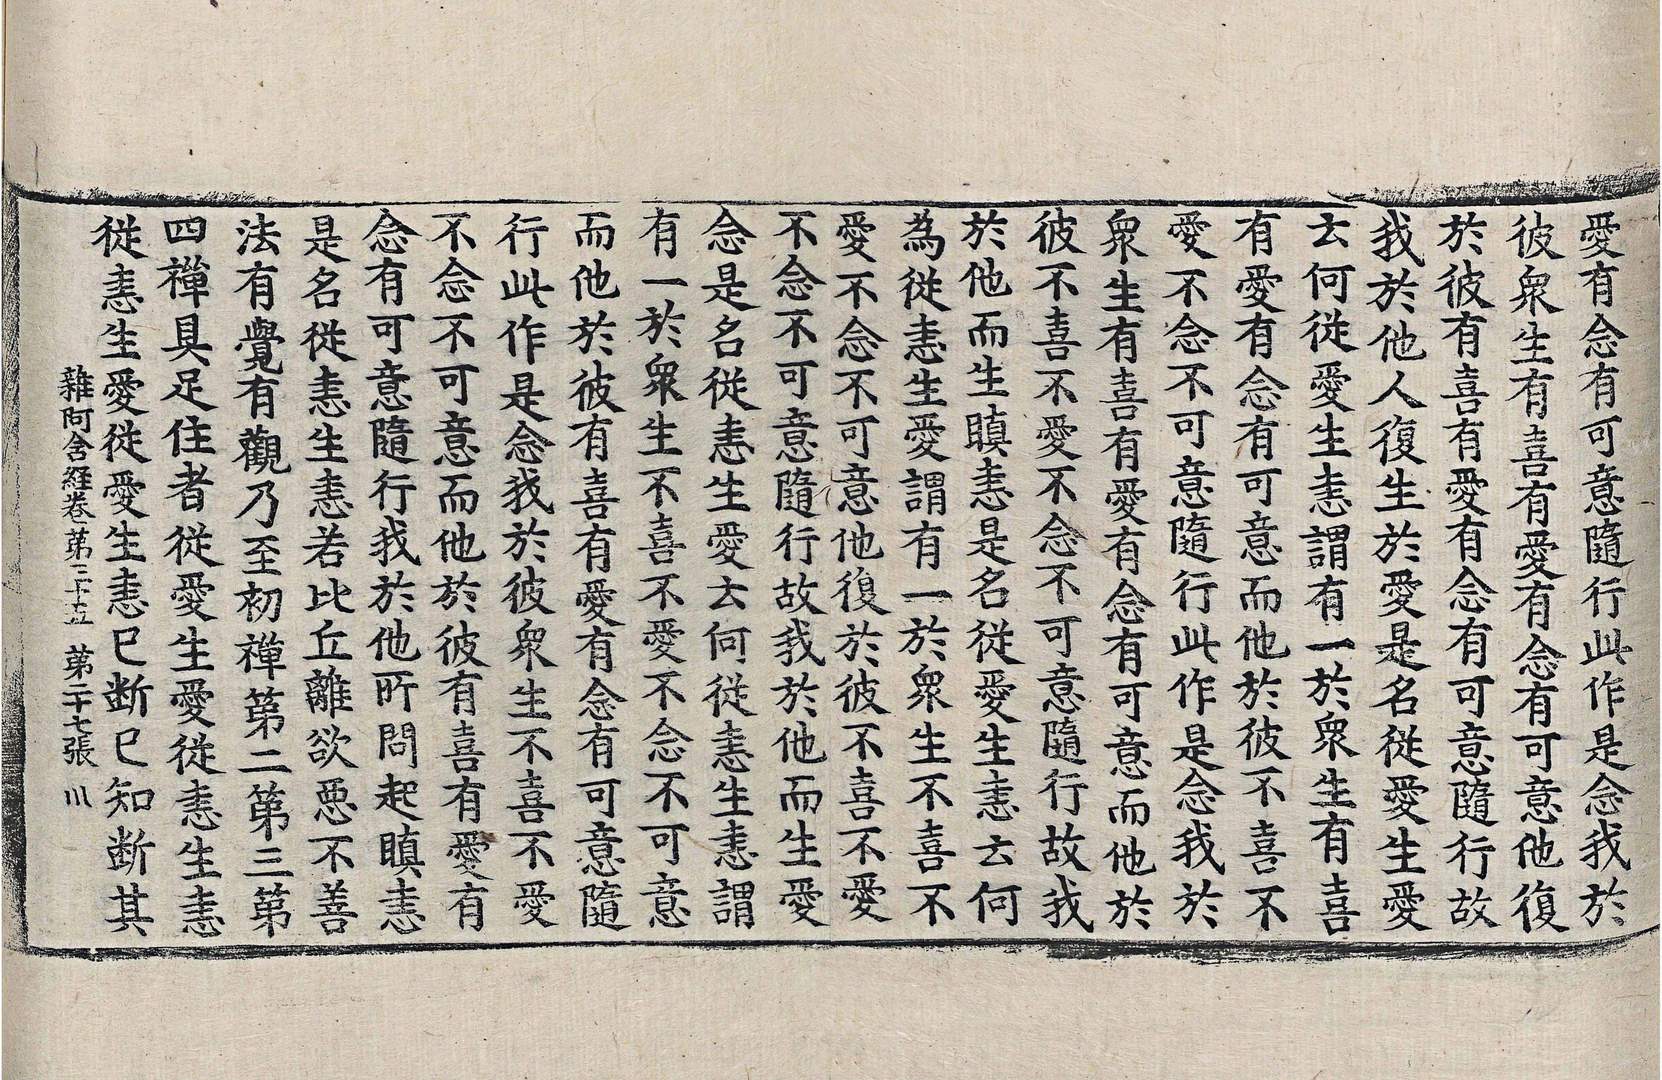 愛有念有可意隨行此作是念我於
彼衆生有喜有愛有念有可意他復
於彼有喜有愛有念有可意隨行故
我於他人復生於愛是名從愛生愛
云何從愛生恚謂有一於衆生有喜
有愛有念有可意而他於彼不喜不
愛不念不可意隨行此作是念我於
衆生有喜有愛有念有可意而他於
彼不喜不愛不念不可意隨行故我
於他而生瞋恚是名從愛生恚云何
為從恚生愛謂有一於衆生不喜不
愛不念不可意他復於彼不喜不愛
不念不可意隨行故我於他而生愛
念是名從恚生愛云何從恚生恚謂
有一於衆生不喜不愛不念不可意
而他於彼有喜有愛有念有可意隨
行此作是念我於彼衆生不喜不愛
不念不可意而他於彼有喜有愛有
念有可意隨行我於他所問起瞋恚
是名從恚生恚若比丘離欲惡不善
法有覺有觀乃至初禪第二第三第
四禪具足住者從愛生愛從恚生恚
從恚生愛從愛生恚已断已知断其
雜阿含經卷第三十五 第二十七張 川